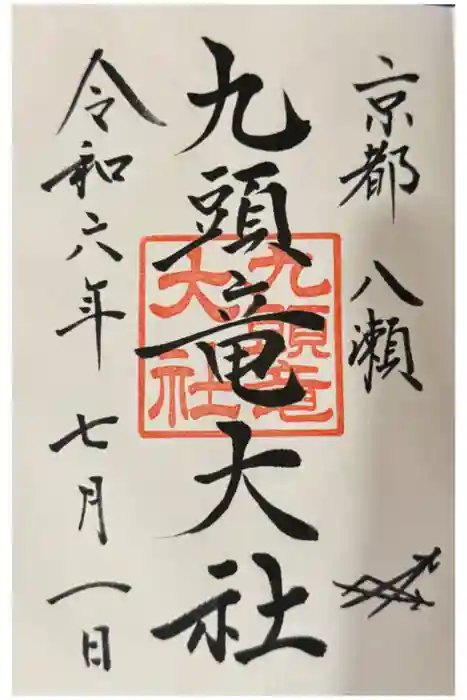 京都 八瀬
九頭竜大社
九頭竜
大社
令和六年 七月 一日